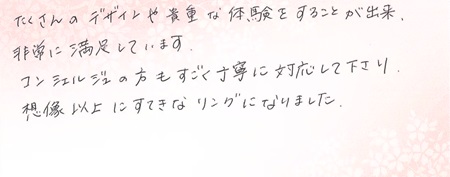 たくさんのデザインや貴重な体験をすることが出来、
非常に満足しています。
コンシェルジュの方もすごく丁寧に対応して下さり、
想像以上にすてきなリングになりました。